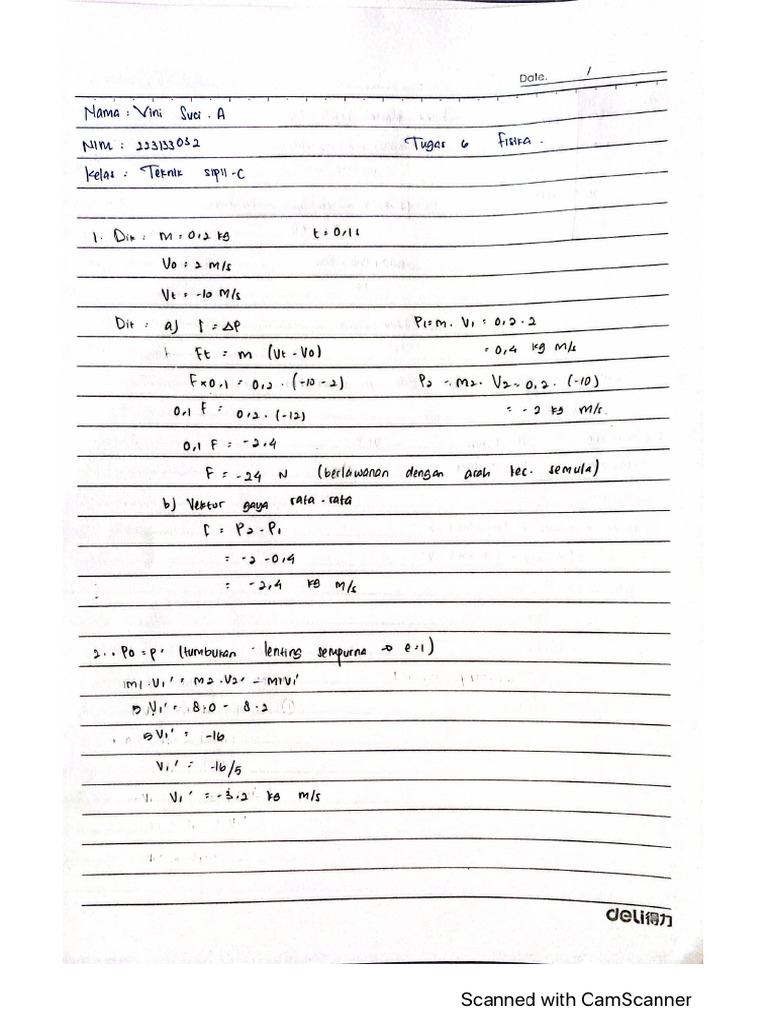 Date. /
Nama : Vini Suci . A
NIM : 223133032 Tugas 6 Fisika .
Kelas : Teknik sipil -C
1. Dik : m = 0,2 kg t = 0,1 s
Vo = 2 m/s
Vt = -10 m/s
Dit : a) I = ΔP P1 = m . V1 = 0,2 . 2
Ft = m (Vt - Vo) = 0,4 kg m/s
F x 0,1 = 0,2 . (-10 - 2) P2 = m2 . V2 = 0,2 . (-10)
0,1 F = 0,2 . (-12) = - 2 kg m/s.
0,1 F = -2,4
F = -24 N (berlawanan dengan arah kec. semula)
b) Vektor gaya rata - rata
I = P2 - P1
= -2 - 0,4
= -2,4 kg m/s
2. . Po = p' (tumbukan lenting sempurna → e=1)
m1 . V1' = m2 . V2' - m1V1'
5 V1' = 8.0 - 8.2
5 V1' = -16
V1' = -16/5
V1' = -3.2 kg m/s
deli得力
Scanned with CamScanner